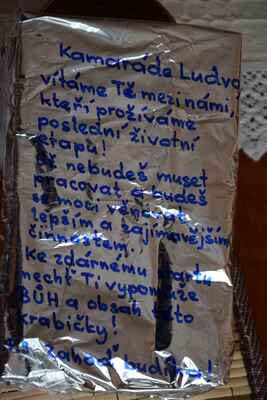 Kamaráde Ludvo
vítáme Tě mezi námi,
kteří prožíváme
poslední životní
etapu!
Už nebudeš muset
pracovat a budeš
se moci věnovat
lepším a zajímavějším
činnostem,
ke zdárnému startu
nechť Ti vypomůže
BŮH a obsah této
krabičky!
P.S. Zahoď budíka!